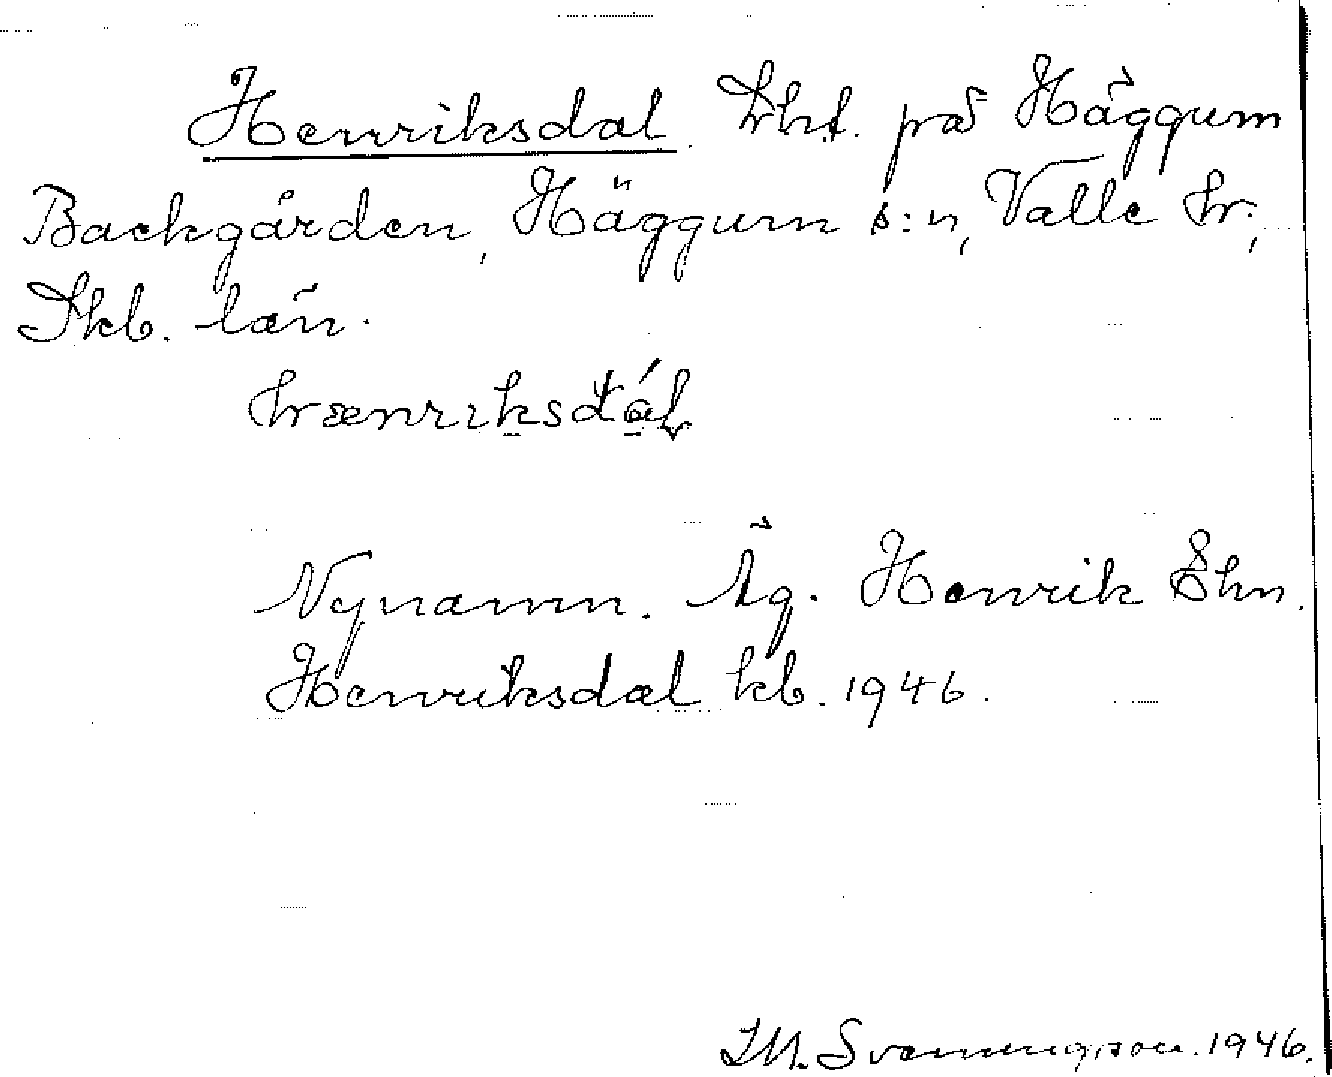 Henriksdal. Lht. på Häggum
Backgården, Häggum s:n, Valle hr;
Skb. län.
hænriksdál
Nynamn. Äg. Henrik Ehn.
Henriksdal kb. 1946.
M. Svenningson. 1946.